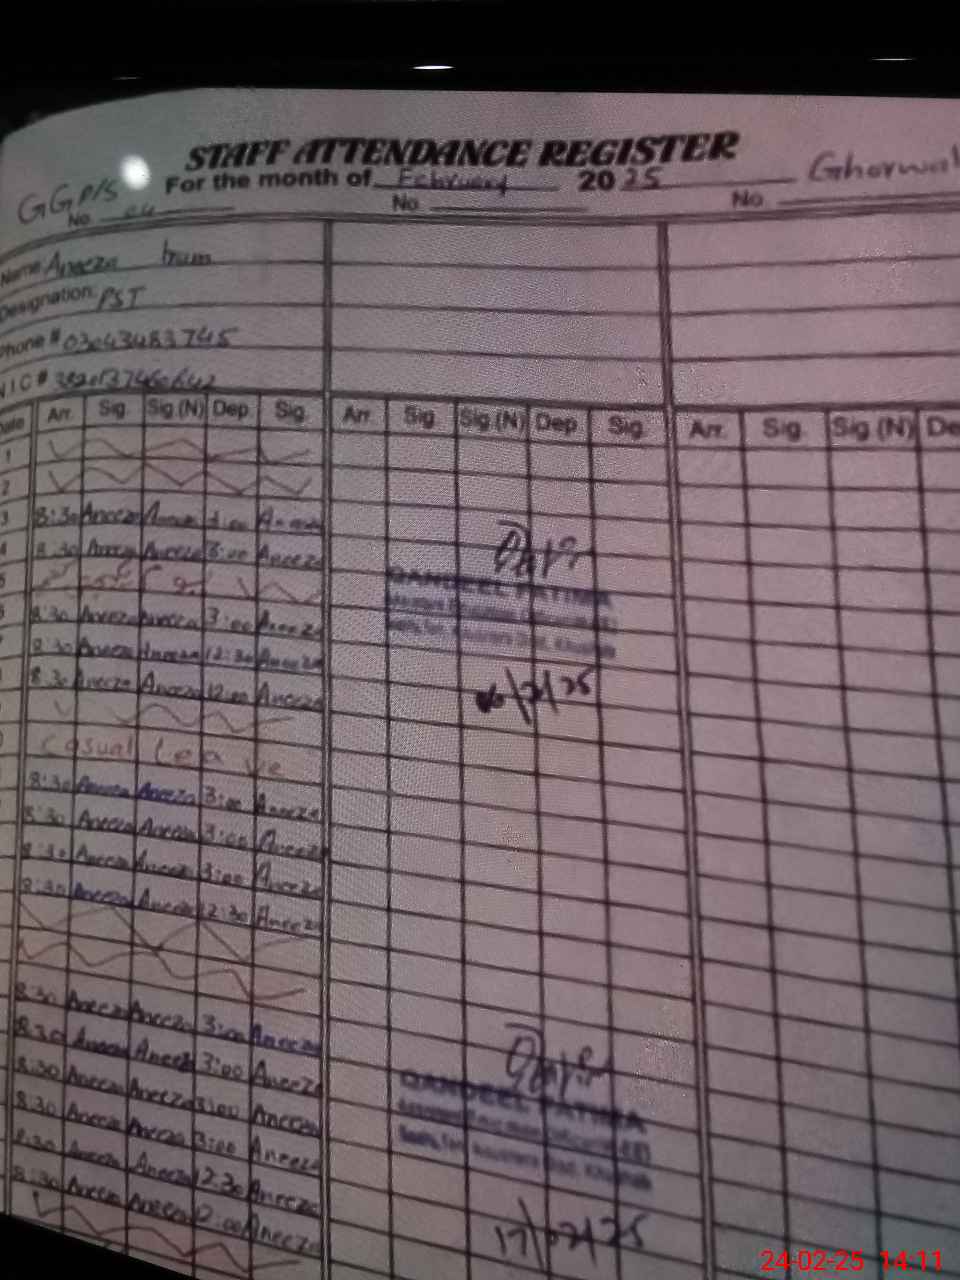 STAFF ATTENDANCE REGISTER
For the month of February 2025
GGP/S Ghorwal
No. No. No.
Name: Aneeza Irum
Designation: PST
Phone # 03043483745
NIC #
Date Arr. Sig. Sig.(N) Dep. Sig. Arr. Sig. Sig.(N) Dep. Sig. Arr. Sig. Sig.(N) De
1
2
3 8:30 Aneeza Aneeza 3:00 Aneeza
4 8:30 Aneeza Aneeza 3:00 Aneeza
5
8:30 Aneeza Aneeza 3:00 Aneeza
QANDEEL FATIMA
8:30 Aneeza Aneeza 12:30 Aneeza
8:30 Aneeza Aneeza 12:00 Aneeza
06/02/25
Casual Leave
8:30 Aneeza Aneeza 3:00 Aneeza
8:30 Aneeza Aneeza 3:00 Aneeza
8:30 Aneeza Aneeza 3:00 Aneeza
8:30 Aneeza Aneeza 12:30 Aneeza
8:30 Aneeza Aneeza 3:00 Aneeza
8:30 Aneeza Aneeza 3:00 Aneeza
8:30 Aneeza Aneeza 3:00 Aneeza
QANDEEL FATIMA
8:30 Aneeza Aneeza 3:00 Aneeza
8:30 Aneeza Aneeza 12:30 Aneeza
8:30 Aneeza Aneeza 12:00 Aneeza
17/02/25
24-02-25 14:11